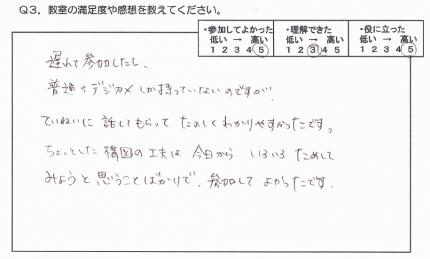 Q3．教室の満足度や感想を教えてください。
・参加してよかった ・理解できた ・役に立った
低い → 高い 低い → 高い 低い → 高い
1 2 3 4 5 1 2 3 4 5 1 2 3 4 5
遅れて参加したし、
普通のデジカメしか持っていないのですが
ていねいに話してもらってたのしくわかりやすかったです。
ちょっとした構図の工夫は今日からいろいろためして
みようと思うことばかりで、参加してよかったです。